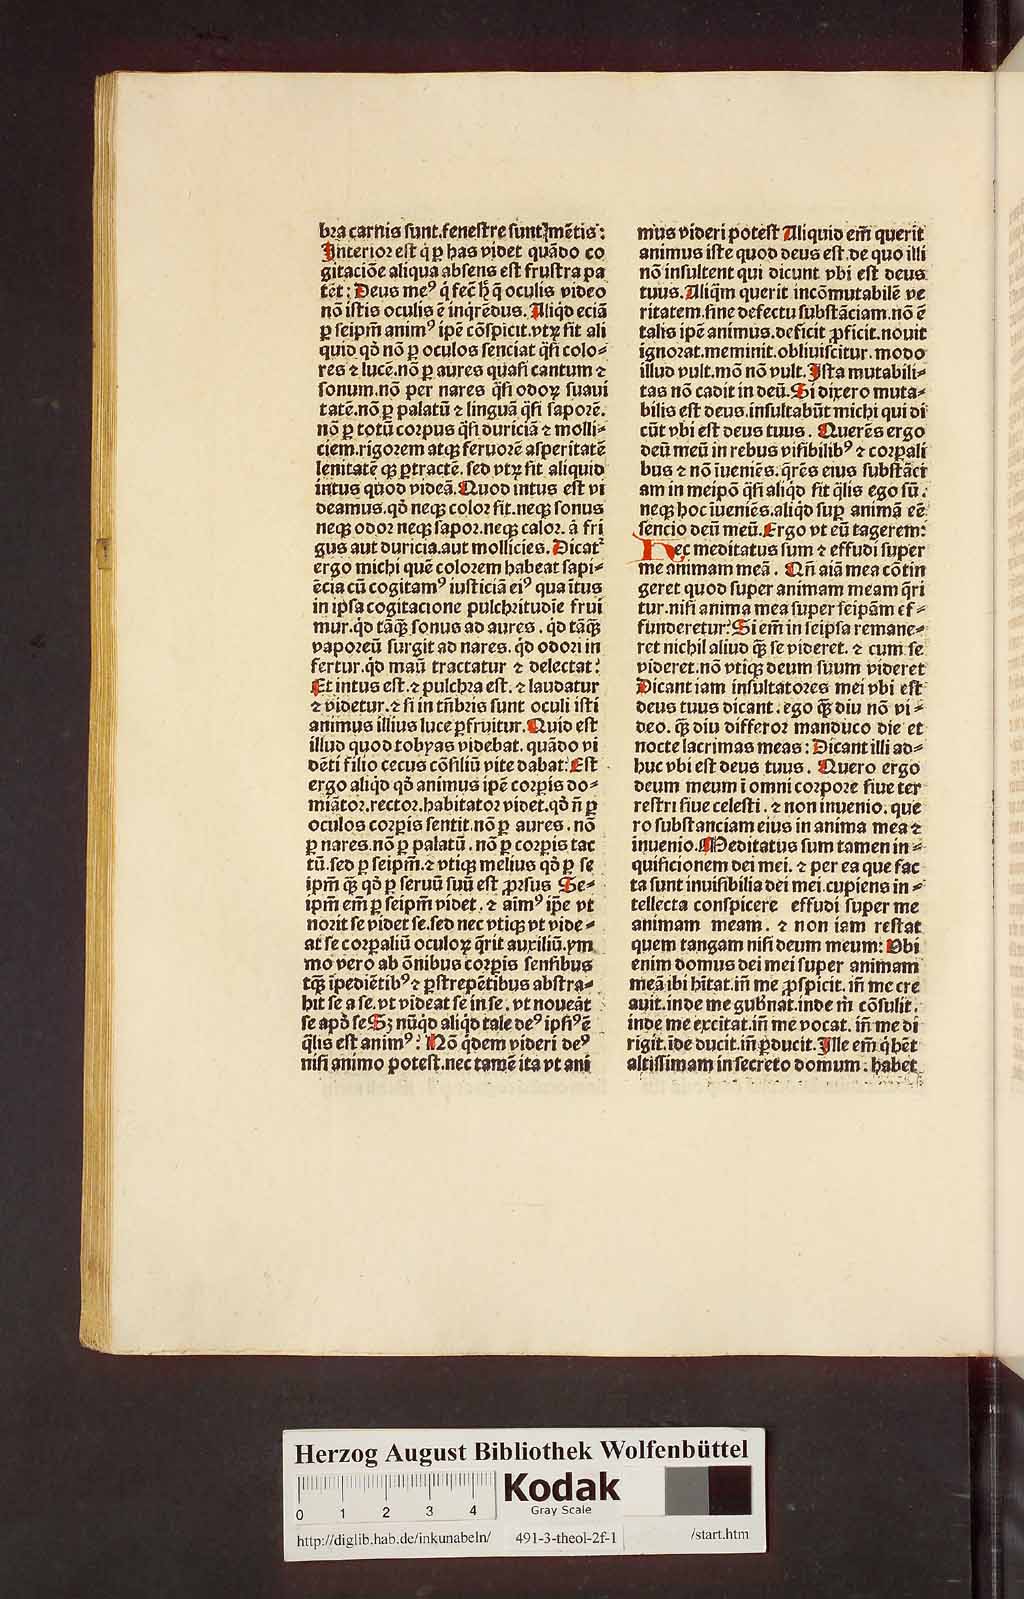 bra carnis sunt.fenestre sunt mētis:
Interior est q̇ ꝑ has videt quādo co
gitaciōe aliqua absens est frustra pa
tēt: Deus meꝰ q̇ fec̄ h̄ q̄ oculis video
nō istis oculis ē inqrēdus. Aliqd eciā
ꝑ seipm̄ animꝰ ipē cōspicit.vtꝝ sit ali
quid qd̄ nō ꝑ oculos senciat q̄si colo⸗
res ⁊ lucē.nō ꝑ aures quasi cantum ⁊
sonum.nō per nares q̄si odoꝝ suaui
tatē.nō ꝑ palatū ⁊ linguā q̄si saporē.
nō ꝑ totū corpus q̄si duriciā ⁊ molli⸗
ciem.rigorem atqꝫ feruorē asperitatē
lenitatē qꝫ ꝑtractē. sed vtꝝ sit aliquid
intus quod videā. Quod intus est vi
deamus.qd̄ neqꝫ color sit.neqꝫ sonus
neqꝫ odor neqꝫ sapor.neqꝫ calor. ā fri
gus aut duricia.aut mollicies. Dicat᷑
ergo michi quē colorem habeat sapi⸗
ēcia cū cogitamꝰ iusticiā eiꝰ qua ītus
in ipsa cogitacione pulchritudīe frui
mur.qd tāqꝫ̄ sonus ad aures. qd tāqꝫ̄
vaporeū surgit ad nares. qd odori in
fertur.qd maū tractatur ⁊ delectat?
Et intus est.⁊ pulchra est. ⁊ laudatur
⁊ videtur.⁊ si in tn̄bris sunt oculi isti
animus illius luce ꝑfruitur. Quid est
illud quod tobyas videbat. quādo vi
dēti filio cecus cōsiliū vite dabat: Est
ergo aliqd qd̄ animus ipē corpis do⸗
miātor.rector.habitator videt.qd̄ n̄ ꝑ
oculos corpis sentit.nō ꝑ aures. nō
ꝑ nares.nō ꝑ palatū. nō ꝑ corpis tac
tū.sed ꝑ seipm̄.⁊ vtiqꝫ melius qd̄ ꝑ se
ipm̄ qꝫ̄ qd̄ ꝑ seruū suū est ꝓrsus Se⸗
ipm̄ em̄ ꝑ seipm̄ videt. ⁊ aīmꝰ ipē vt
norit se videt se.sed nec vtiqꝫ vt vide⸗
at se corpaliū oculoꝝ q̄rit auxiliū.ym
mo vero ab ōnibus corpis sensibus
tqꝫ̄ īpediētibꝰ ⁊ ꝑstrepētibus abstra⸗
hit se a se.vt videat se in se. vt noueāt
se apd̄ se Sꝫ nūqd aliqd tale deꝰ ipsiꝰ ē
q̄lis est animꝰ? Nō qdem videri deꝰ
nisi animo potest.nec tamē ita vt ani
mus videri potest Aliquid em̄ querit
animus iste quod deus est.de quo illi
nō insultent qui dicunt vbi est deus
tuus. Aliqm̄ querit incōmutabilē ve
ritatem.sine defectu substāciam.nō ē
talis ipē animus.deficit ꝓficit.nouit
ignorat.meminit.obliuiscitur. modo
illud vult.mō nō vult. Ista mutabili⸗
tas nō cadit in deū. Si dixero muta⸗
bilis est deus.insultabūt michi qui di
cūt vbi est deus tuus. Querēs ergo
deū meū in rebus visibilibꝰ ⁊ corpali
bus ⁊ nō īueniēs. q̄rēs eius substāci
am in meipō q̄si aliqd sit q̄lis ego sū.
neqꝫ hoc īueniēs.aliqd sup animā eē
sencio deū meū. Ergo vt eū tagerem:
Hec meditatus sum ⁊ effudi super
me animam meā. Qn̄ aīā mea cōtin
geret quod super animam meam q̄ri
tur.nisi anima mea super seipām ef⸗
funderetur? Si em̄ in seipsa remane⸗
ret nichil aliud qꝫ̄ se videret. ⁊ cum se
videret.nō vtiqꝫ deum suum videret
Dicant iam insultatores mei vbi est
deus tuus dicant. ego qꝫ̄ diu nō vi⸗
deo. qꝫ̄ diu differor manduco die et
nocte lacrimas meas: Dicant illi ad⸗
huc vbi est deus tuus. Quero ergo
deum meum ī omni corpore siue ter
restri siue celesti. ⁊ non inuenio. que
ro substanciam eius in anima mea ⁊
inuenio. Meditatus sum tamen in⸗
quisicionem dei mei. ⁊ per ea que fac
ta sunt inuisibilia dei mei.cupiens in⸗
tellecta conspicere effudi super me
animam meam. ⁊ non iam restat
quem tangam nisi deum meum: Vbi
enim domus dei mei super animam
meā ibi hītat.in̄ me ꝓspicit. in̄ me cre
auit.inde me gubn̄at.inde m̄ cōsulit.
inde me excitat.in̄ me vocat. in̄ me di
rigit.īde ducit.in̄ ꝑducit. Ille em̄ q hēt
altissimam in secreto domum. habet
Herzog August Bibliothek Wolfenbüttel
0 1 2 3 4
Kodak
Gray Scale
http://diglib.hab.de/inkunabeln/ 491-3-theol-2f-1 /start.htm